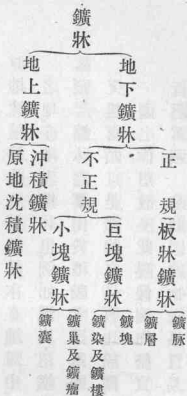 鑛牀
地下鑛牀
正規
板牀鑛牀
鑛脉
鑛層
不正規
巨塊鑛牀
鑛塊
鑛染及鑛樓
小塊鑛牀
鑛巢及鑛瘤
鑛囊
地上鑛牀
沖積鑛牀
原地沈積鑛牀